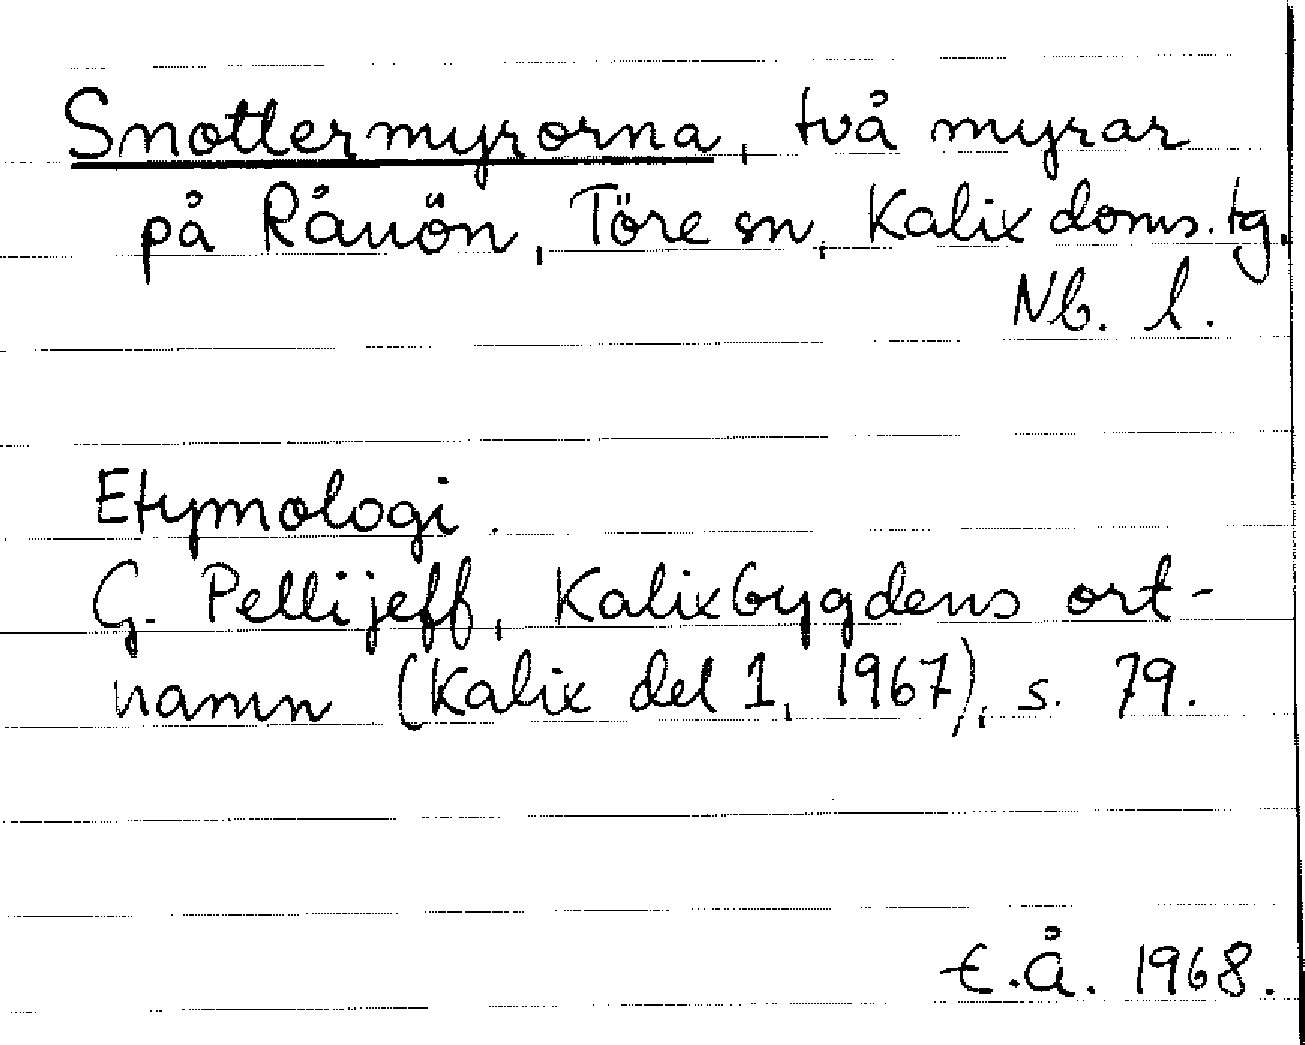 Snottermyrorna, två myrar
på Rånön, Töre sn, Kalix doms. tg.
Nb. l.
Etymologi.
G. Pellijeff, Kalixbygdens ort-
namn (Kalix del 1, 1967), s. 79.
E.Å. 1968.